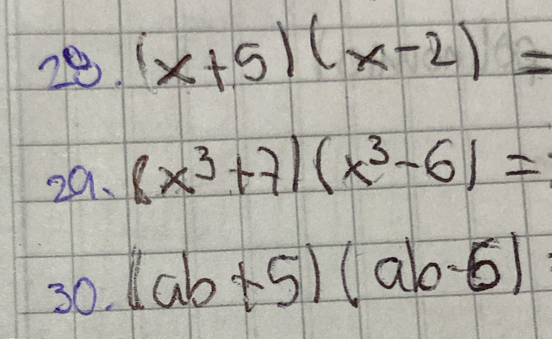 28. (x+5)(x-2) =
29. (x³+7)(x³-6) =
30. (ab+5)(ab-6)